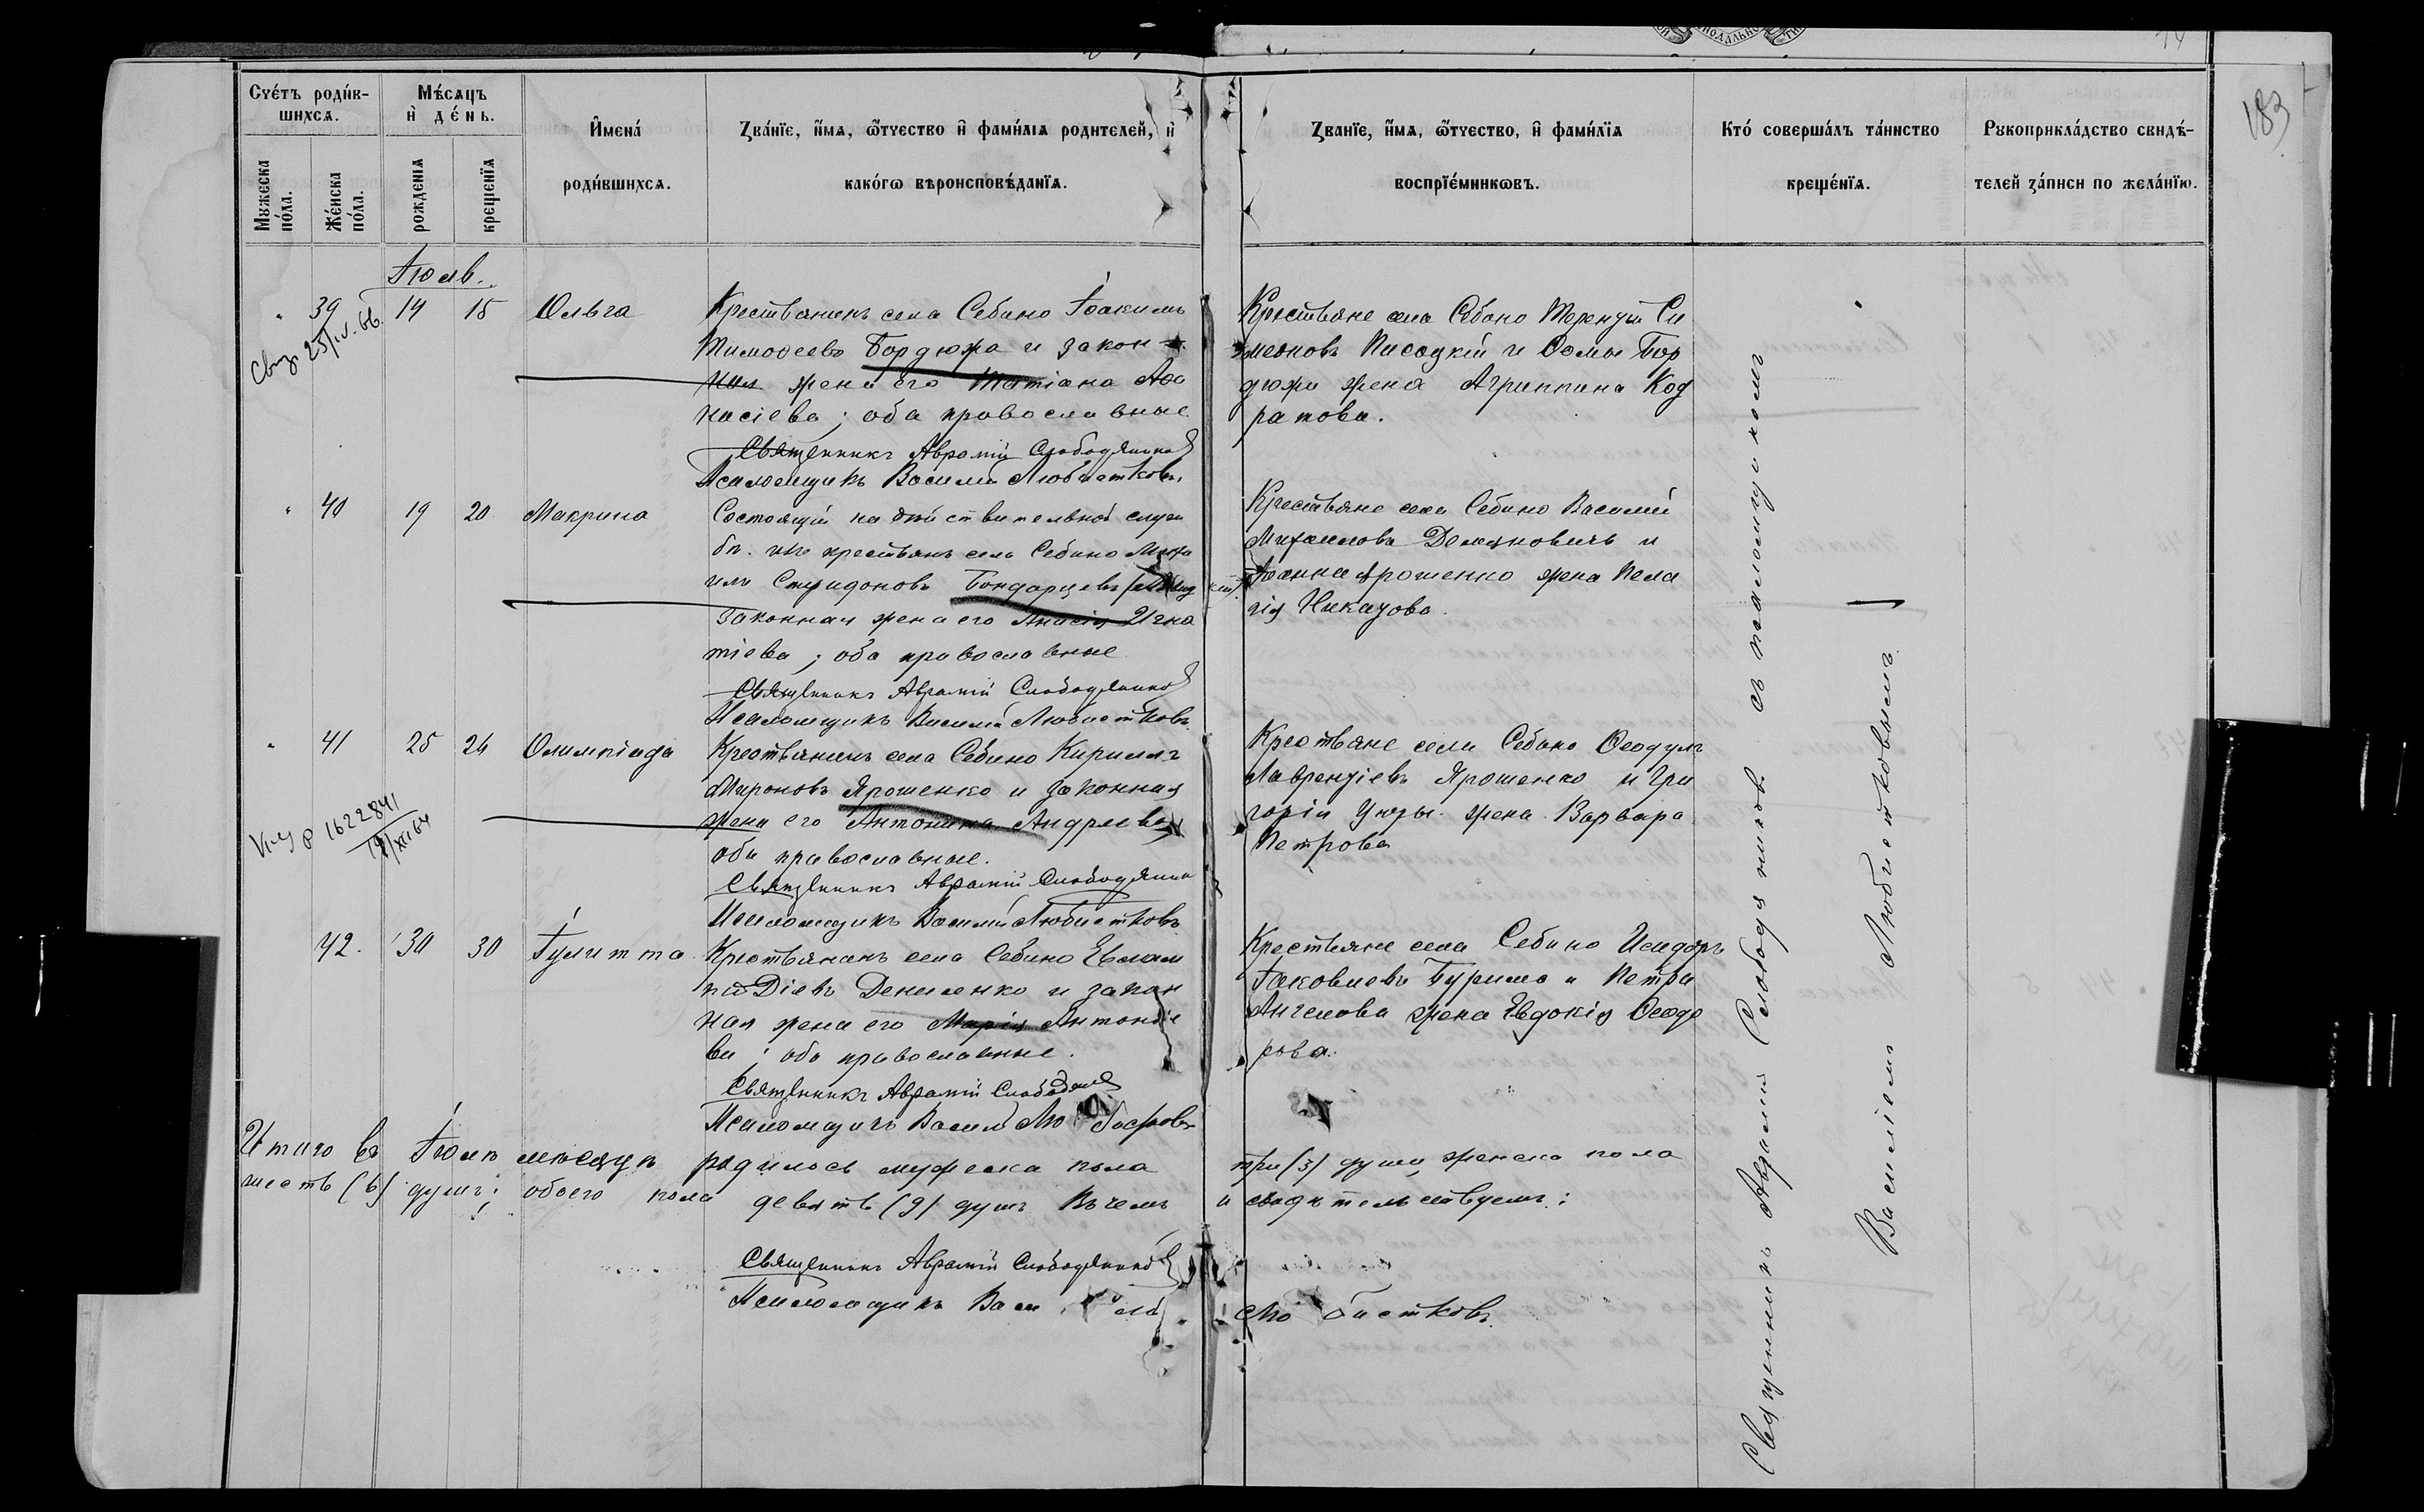 183
Счетъ родив-
шихся.
Мужеска
пола.
Женска
пола.
Месяцъ
и день.
рождения
крещенїя
Имена
родившихся.
Званїе, имя, отчество и фамилїя родителей, и
какого вероисповеданїя.
Званїе, имя, отчество, и фамилїя
воспрїемниковъ.
Кто совершалъ таинство
крещенїя.
Рукоприкладство свиде-
телей записи по желанїю.
Іюль.
39 14 15 Ольга
25/IV.66.
Крестьянинъ села Себино Іоакимъ
Тимоѳеевъ Бордюжа и закон-
ная жена его Татіана Аѳа
насіева; оба православные
Священникъ Аврамій Слободяникъ
Псаломщикъ Василій Любистковъ
Крестьяне села Себино Терентій Си
меоновъ Писоцкій и Ѳомы Бор
дюжи жена Агриппина Код
ратова.
40 19 20 Макрина
Состоящій на действительной служ
бѣ изъ крестьянъ села Себино Миха
илъ Спиридоновъ Бондарцевъ
законная жена его Анисія Игна
тіева; оба православные
Священникъ Аврамій Слободяникъ
Псаломщикъ Василій Любистковъ
Крестьяне села Себино Василий
Михаиловъ Демяновичъ и
Іоанна Ярошенко жена Пела
гія
41 25 26 Олимпіада
1622841
19/XI 64
Крестьянинъ села Себино Кириллъ
Мироновъ Ярошенко и законная
жена его Антонина Андреева
оба православные.
Священникъ Аврамій Слободяникъ
Псаломщикъ Василій Любистковъ
Крестьяне села Себино Ѳеодулъ
Лаврентіевъ Ярошенко и Гри
горія жена Варвара
Петрова
42. 30 30 Іулитта
Крестьянинъ села Себино Евлам
пій Діевъ Дениленко и закон
ная жена его Марія Антоніе
ва; оба православные.
Священникъ Аврамій
Псаломщикъ Василій Любистковъ
Крестьяне села Себино Исидоръ
Іаковлевъ Бурима и Петра
Ангелова жена Евдокія Ѳеодо
рова.
Итого въ Іюлѣ мѣсяцѣ родилось мужеска пола три (3) души, женска пола
шесть (6) душъ; обоего пола девять (9) душъ въ чемъ и свидѣтельствуемъ:
Священникъ Аврамій Слободяникъ
Псаломщикъ Василій Любистковъ
Священникъ Аврамій Слободяниковъ съ псаломщикомъ
Василіемъ Любистковымъ